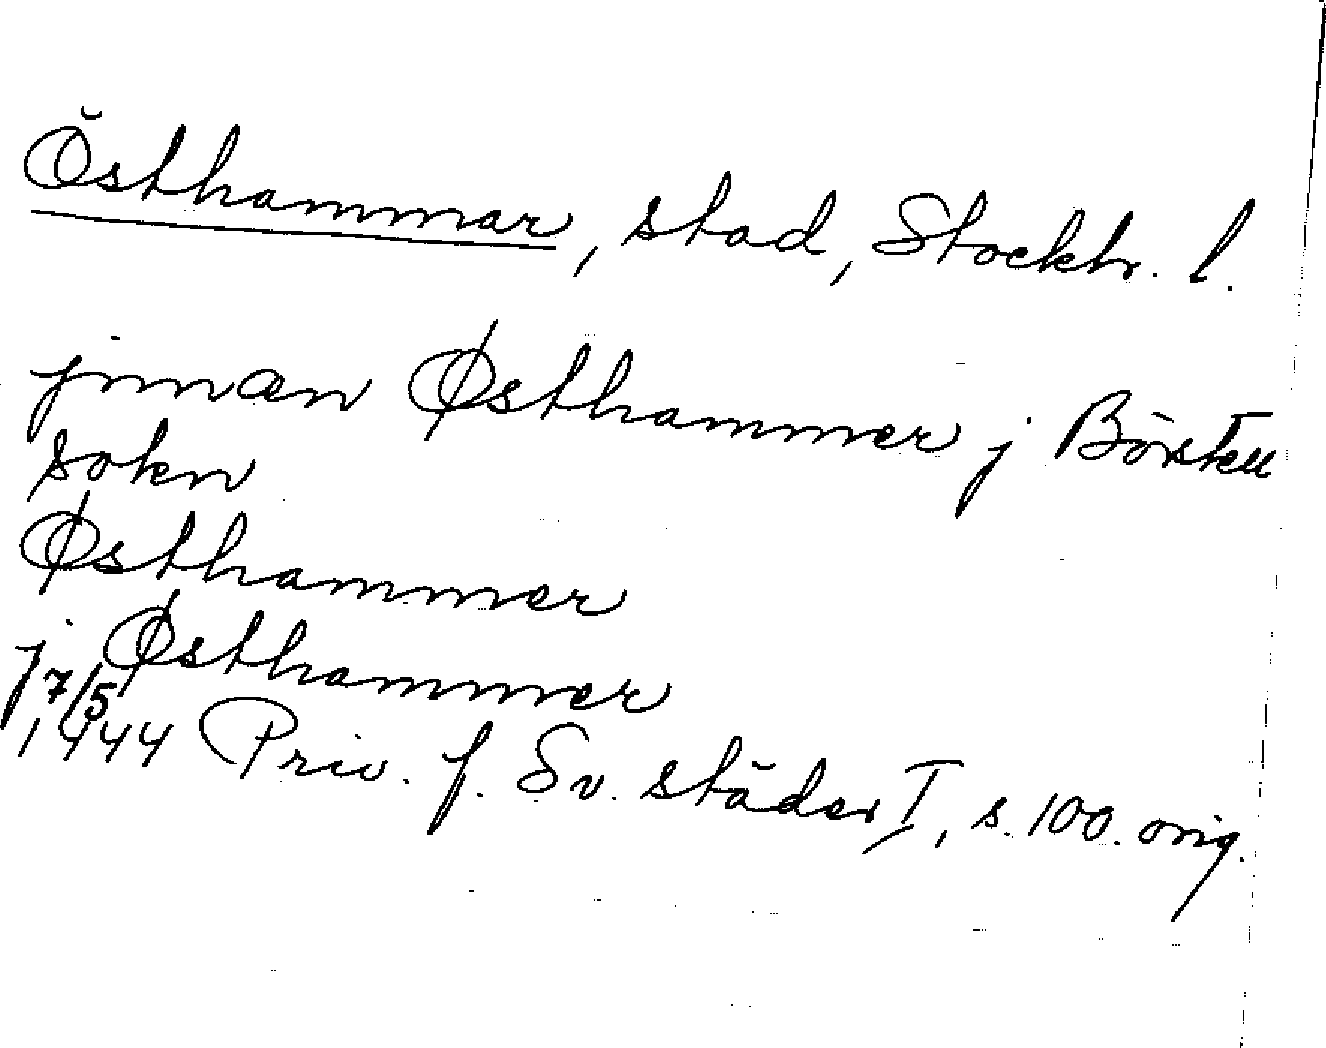 Östhammar, stad, Stockh. l.
jnnan Østhammer j Börstell
sokn
Østhammer
j Østhammer
7/5
1444 Priv. f. Sv. städer I, s. 100. orig.